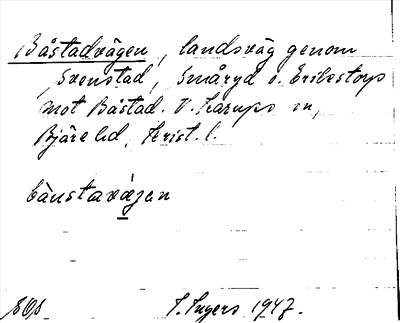 Båstadvägen, landsväg genom
Svenstad, Småryd o. Erikstorp
mot Båstad. V. Karups sn,
Bjäre hd, Krist. l.
bàustavä̀gen
I. Ingers 1947.